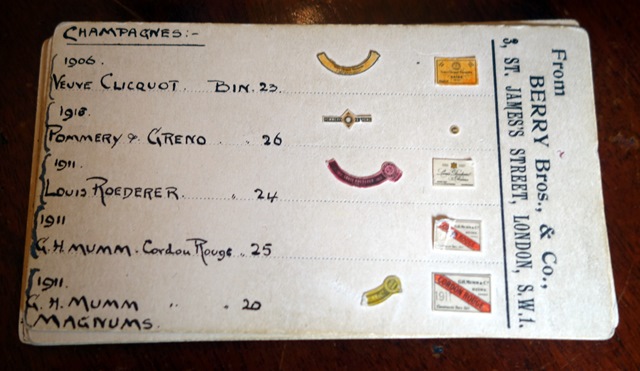 CHAMPAGNES:-
1906.
VEUVE CLICQUOT. BIN. 23.
1915
POMMERY & GRENO " 26
1911.
LOUIS ROEDERER. " 24
1911
G. H. MUMM. Cordon Rouge " 25
1911.
G. H. MUMM " " 20
MAGNUMS.
CORDON ROUGE
1911
From
BERRY Bros., & Co.,
3, ST. JAMES'S STREET, LONDON, S.W.1.